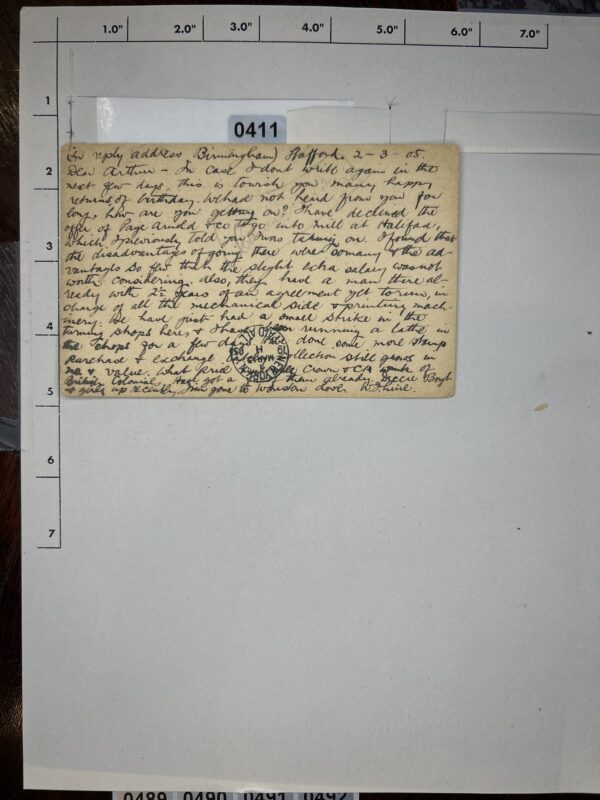 1.0" 2.0" 3.0" 4.0" 5.0" 6.0" 7.0"
1
2
3
4
5
6
7
0411
(In reply address Birmingham) Stafford 2-3-05.
Dear Arthur - In case I dont write again in the
next few days, this is to wish you many happy
returns of birthday. We have not heard from you for
long, how are you getting on? I have declined the
offer of Page Arnold & co to go into mill at Halifax,
which I previously told you I was taking on. I found that
the disadvantages of going there were so many & the ad-
vantages so few that the slight extra salary was not
worth considering. Also, they have a man there al-
ready with 2½ years of an agreement yet to run, in
charge of all the mechanical side & printing mach-
inery. We have just had a small strike in the
turning shops here, & I have been running a lathe in
the shops for a few days. done some more stamp
purchase & exchange. collection still grows in
& value. What price Crown & CA
British Colonial. Have got a them already.
& girls up recently. gone to
0489 0490 0491 0492